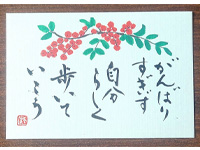 がんばり
すぎず
自分
らしく
歩いて
いこう